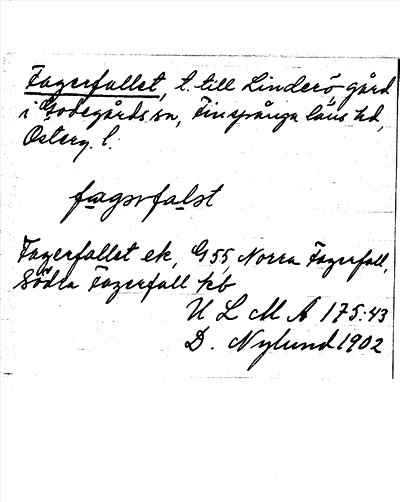 Fagerfallet, t. till Linderö gård
i Godegårds sn, Finspånga läns hd,
Österg. l.
fagərfalət
Fagerfallet ek, G 55, Norra Fagerfall,
Södra Fagerfall kb
U L M A 175:43
D. Nylund 1902